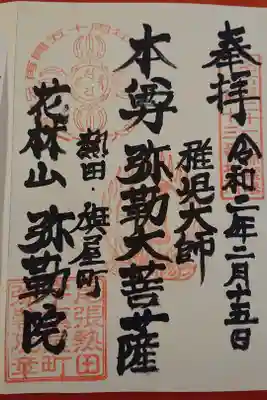 奉拝
令和二年二月十五日
稚児大師
本尊 弥勒大菩薩
熱田・旗屋町
花林山 弥勒院